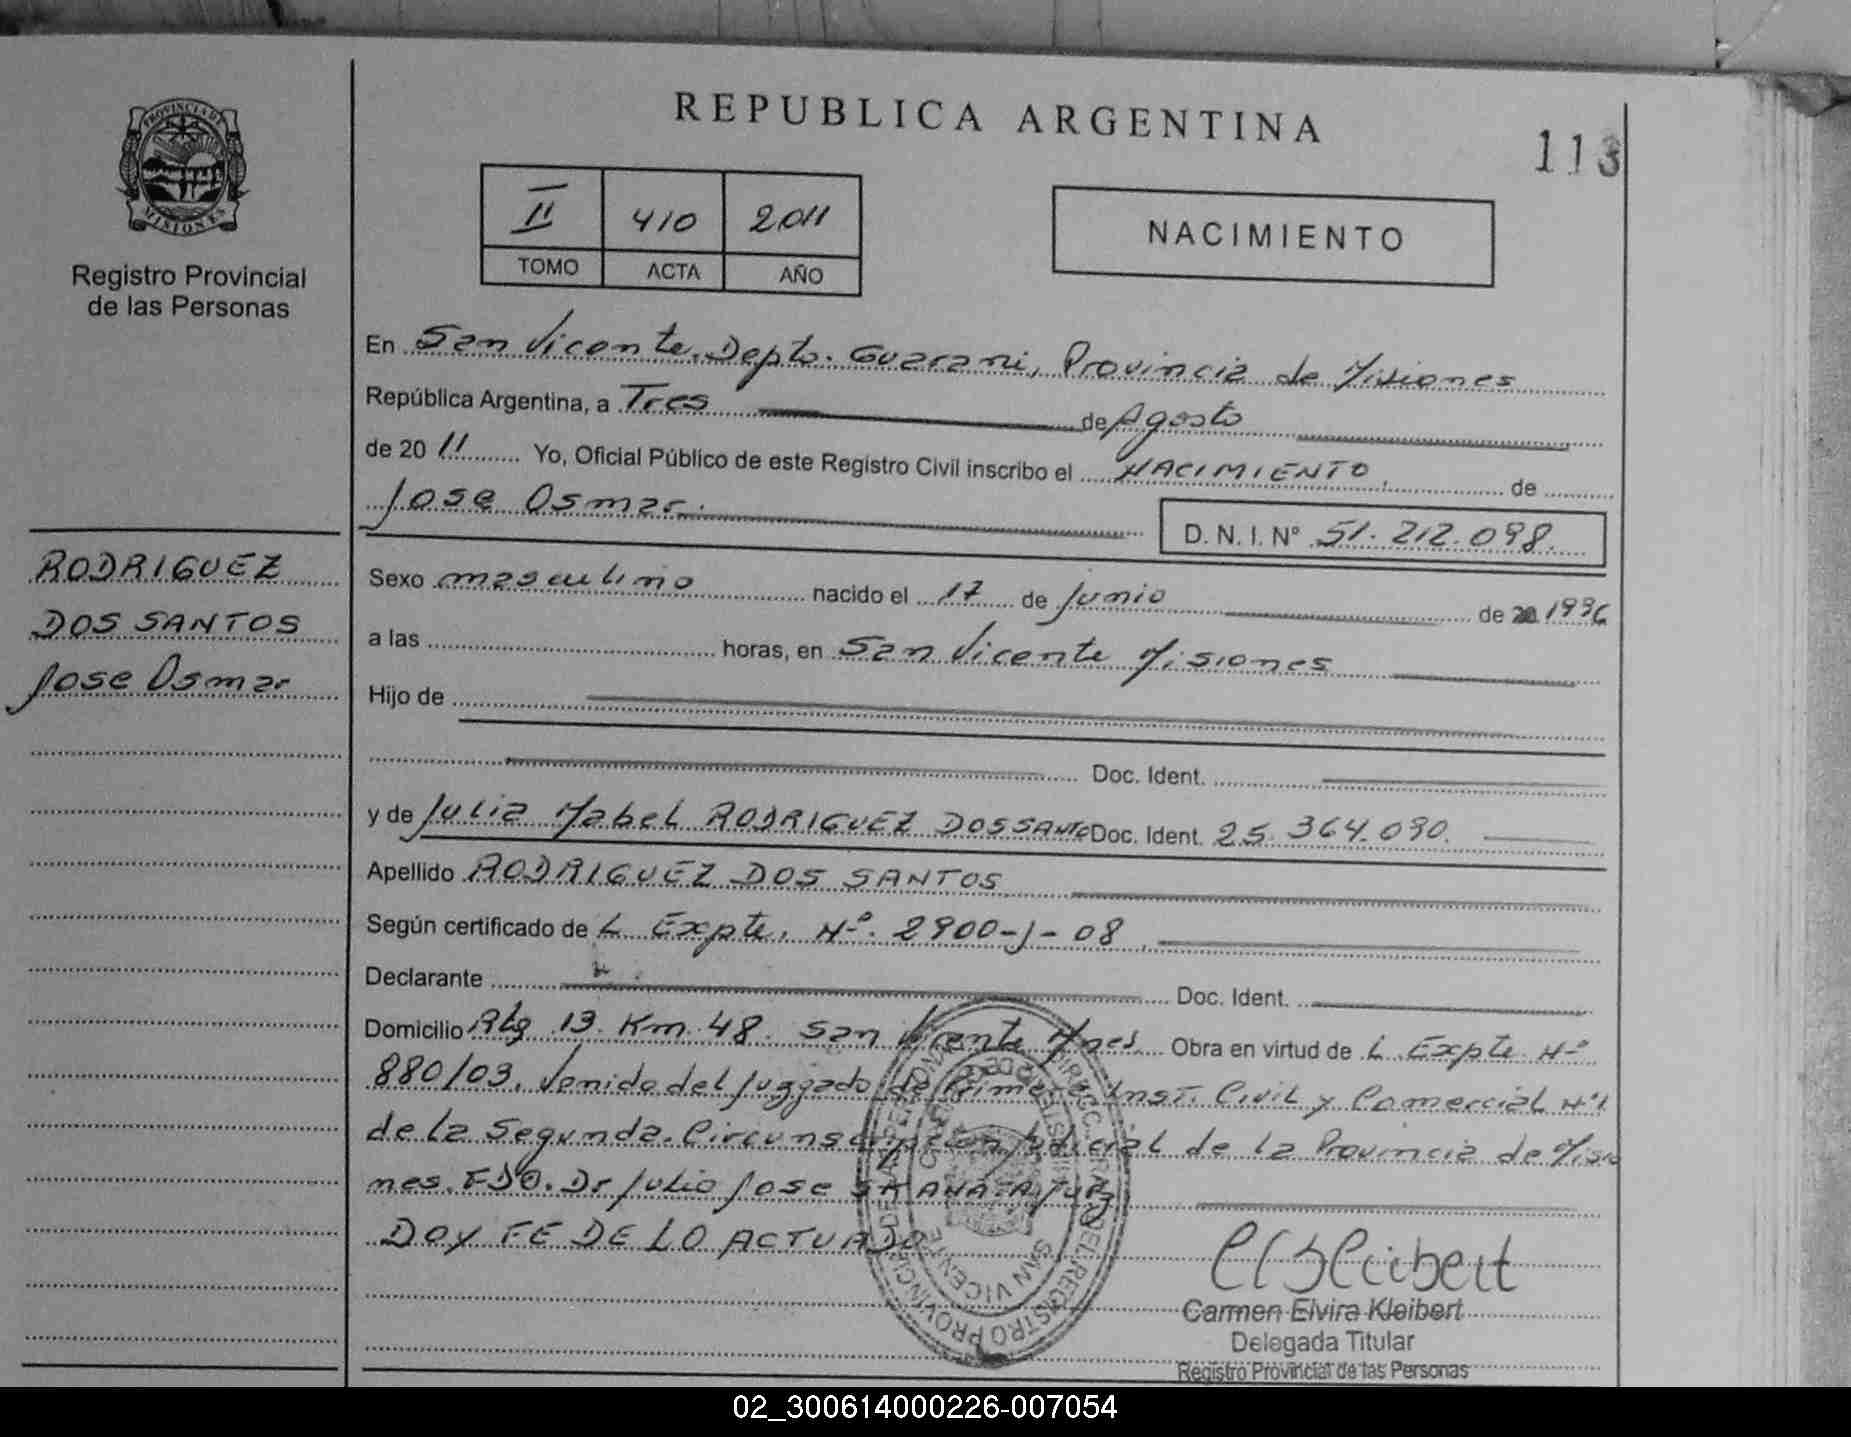 REPUBLICA ARGENTINA
113
PROVINCIA DE
MISIONES
Registro Provincial
de las Personas
II 410 2011
TOMO ACTA AÑO
NACIMIENTO
En San Vicente. Depto. Guarani, Provincia de Misiones
República Argentina, a Tres de Agosto
de 20 11 Yo, Oficial Público de este Registro Civil inscribo el NACIMIENTO, de
Jose Osmar.
D. N. I. Nº 51.212.098.
RODRIGUEZ
DOS SANTOS
Jose Osmar
Sexo masculino nacido el 17 de Junio de 1996
a las horas, en San Vicente Misiones
Hijo de
Doc. Ident.
y de Julia Mabel RODRIGUEZ DOS SANTOS Doc. Ident. 25.364.090.
Apellido RODRIGUEZ DOS SANTOS
Según certificado de L Expte. Nº. 2900-J-08
Declarante Doc. Ident.
Domicilio 13. Km. 48. San Vicente Mnes. Obra en virtud de L Expte Nº
880/03. Venido del Juzgado de Primera Inst. Civil y Comercial Nº1
de la Segunda Circunscripcion Judicial de la Provincia de Misio
nes. FDO. Dr Julio Jose Juez
DOY FE DE LO ACTUADO
SAN VICENTE
Carmen Elvira Kleibert
Delegada Titular
Registro Provincial de las Personas
02_300614000226-007054